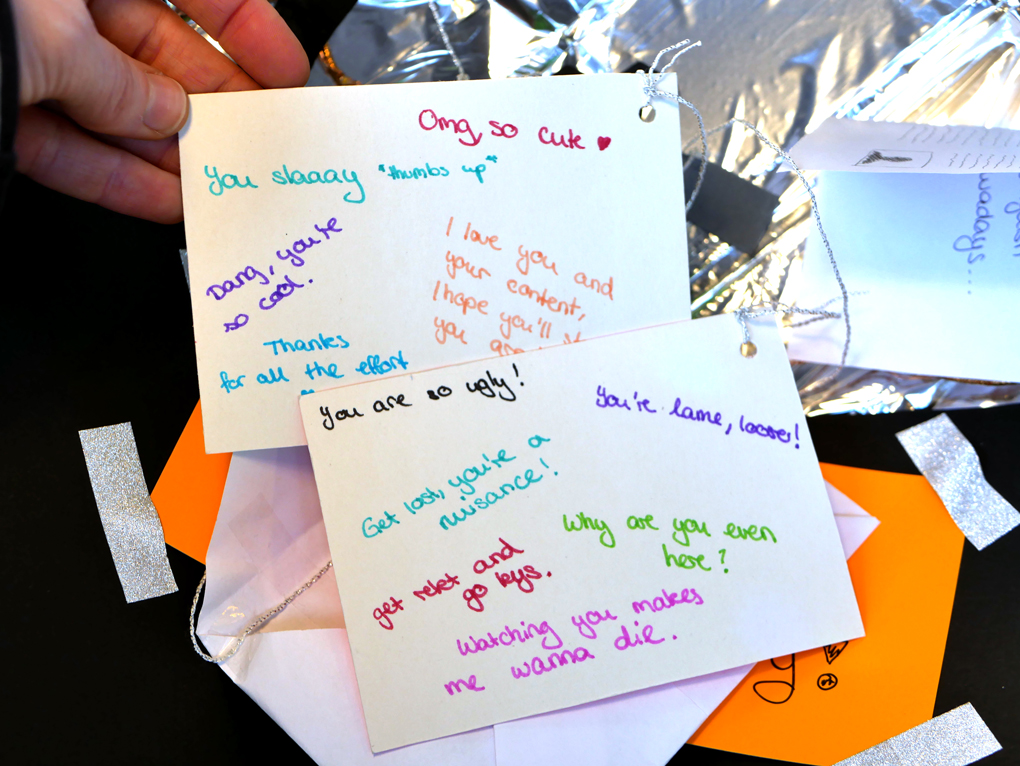 Omg, so cute ♥
You slaaay *thumbs up*
Dang, you're
so cool.
I love you and
your content,
I hope you'll
you are
Thanks
for all the effort
You are so ugly!
You're lame, looser!
Get lost, you're a
nuisance!
Why are you even
here?
get rekt and
go kys.
Watching you makes
me wanna die.
wadays...